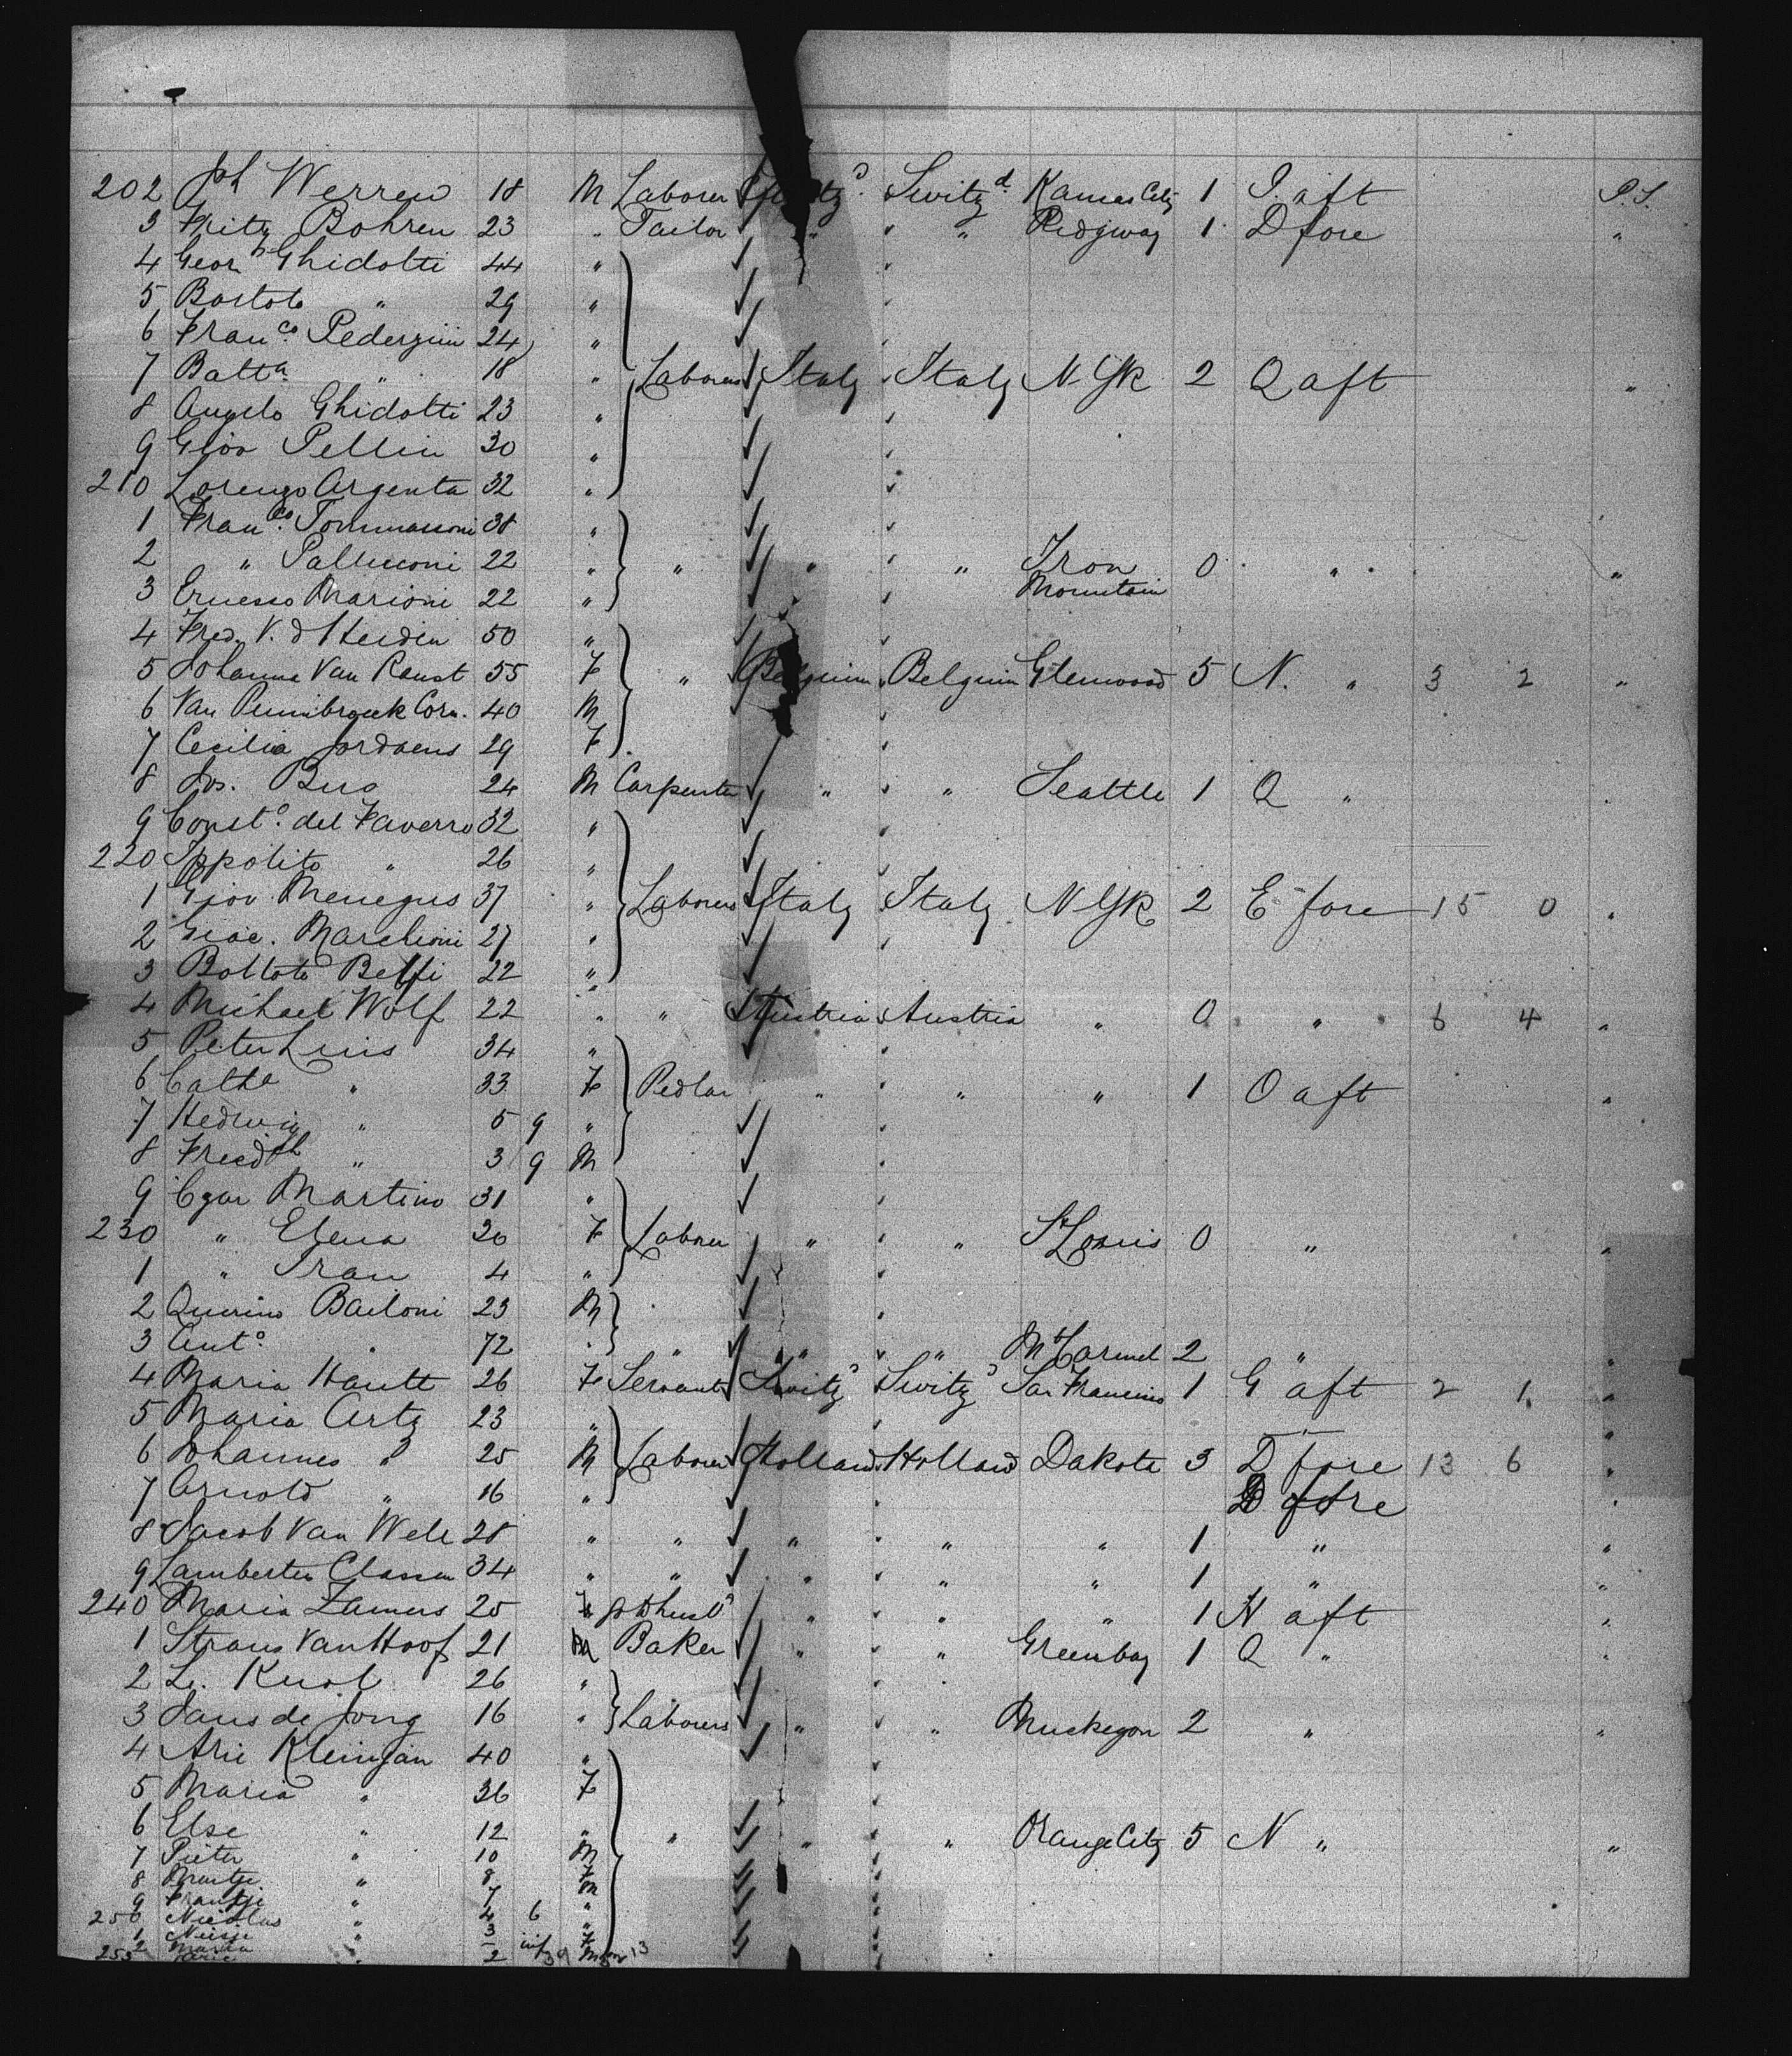 202 Jph Werren 18 M Laborer Switz.d Switz.d Kansas City 1 I. aft P.S.
3 Fritz Bohren 23 " Tailor " " Ridgway 1 D fore "
4 Geor Ghidotti 44 "
5 Bartolo " 29 "
6 Fran.co Pedergnin 24 "
7 Batt.a " 18 " Laborers Italy Italy N. York 2 Q aft "
8 Angelo Ghidotti 23 "
9 Giov Pellin 30 "
210 Lorenzo Argenta 32 "
1 Fran.co Tommasoni 38 "
2 " Palluconi 22 " " " " Iron Mountain 0 " "
3 Ernesto Marioni 22 "
4 Fred. V. d Heidin 50 "
5 Johanna Van Ranst 55 F " Belgium Belgium Glenwood 5 N. " 3 2 "
6 Van Pennibroeck Corn. 40 M
7 Cecilia Jordaens 29 F
8 Jos. Bus 24 M Carpenter " " Seattle 1 Q "
9 Const.o del Faverro 32 "
220 Ippolito " 26 "
1 Giov. Menegus 37 " Laborers Italy Italy N York 2 E fore 15 0 "
2 Giac. Marchioni 27 "
3 Bortolo Belfi 22 "
4 Michael Wolf 22 " " Austria Austria " 0 " 6 4 "
5 Peter Luis 34 "
6 Cathe " 33 F Pedlar " " " 1 O aft "
7 Hedwig " 5 9 "
8 Friedch " 3 9 M
9 Cgar Martino 31 "
230 " Elena 20 F Laborer " " St Louis 0 " "
1 " Fran 4 "
2 Quirino Bailoni 23 M
3 Ant.o " 72 " " " " Mt Carmel 2 " "
4 Maria Hautt 26 F Servant Switz.d Switz.d San Francisco 1 G aft 2 1 "
5 Maria Artz 23 "
6 Johannes " 25 M Laborer Holland Holland Dakota 3 D fore 13 6 "
7 Arnold " 16 " D fore "
8 Jacob Van Well 28 " " " " " 1 " "
9 Lambertus Classen 34 " " " " " 1 " "
240 Maria Lamers 25 F " " " 1 H aft "
1 Van Hoof 21 M Baker " " Greenbay 1 Q " "
2 L. Kust 26 "
3 Jans de Jong 16 " Laborers " " Muskegon 2 " "
4 Arie Kleinjan 40 "
5 Maria " 36 F
6 Else " 12 " " " " Orange City 5 N " "
7 Pieter " 10 M
8 " 8 F
9 " 7 M
250 Nicolas " 4 6 "
1 " 3 "
2 Maria " inf F
253 " 2